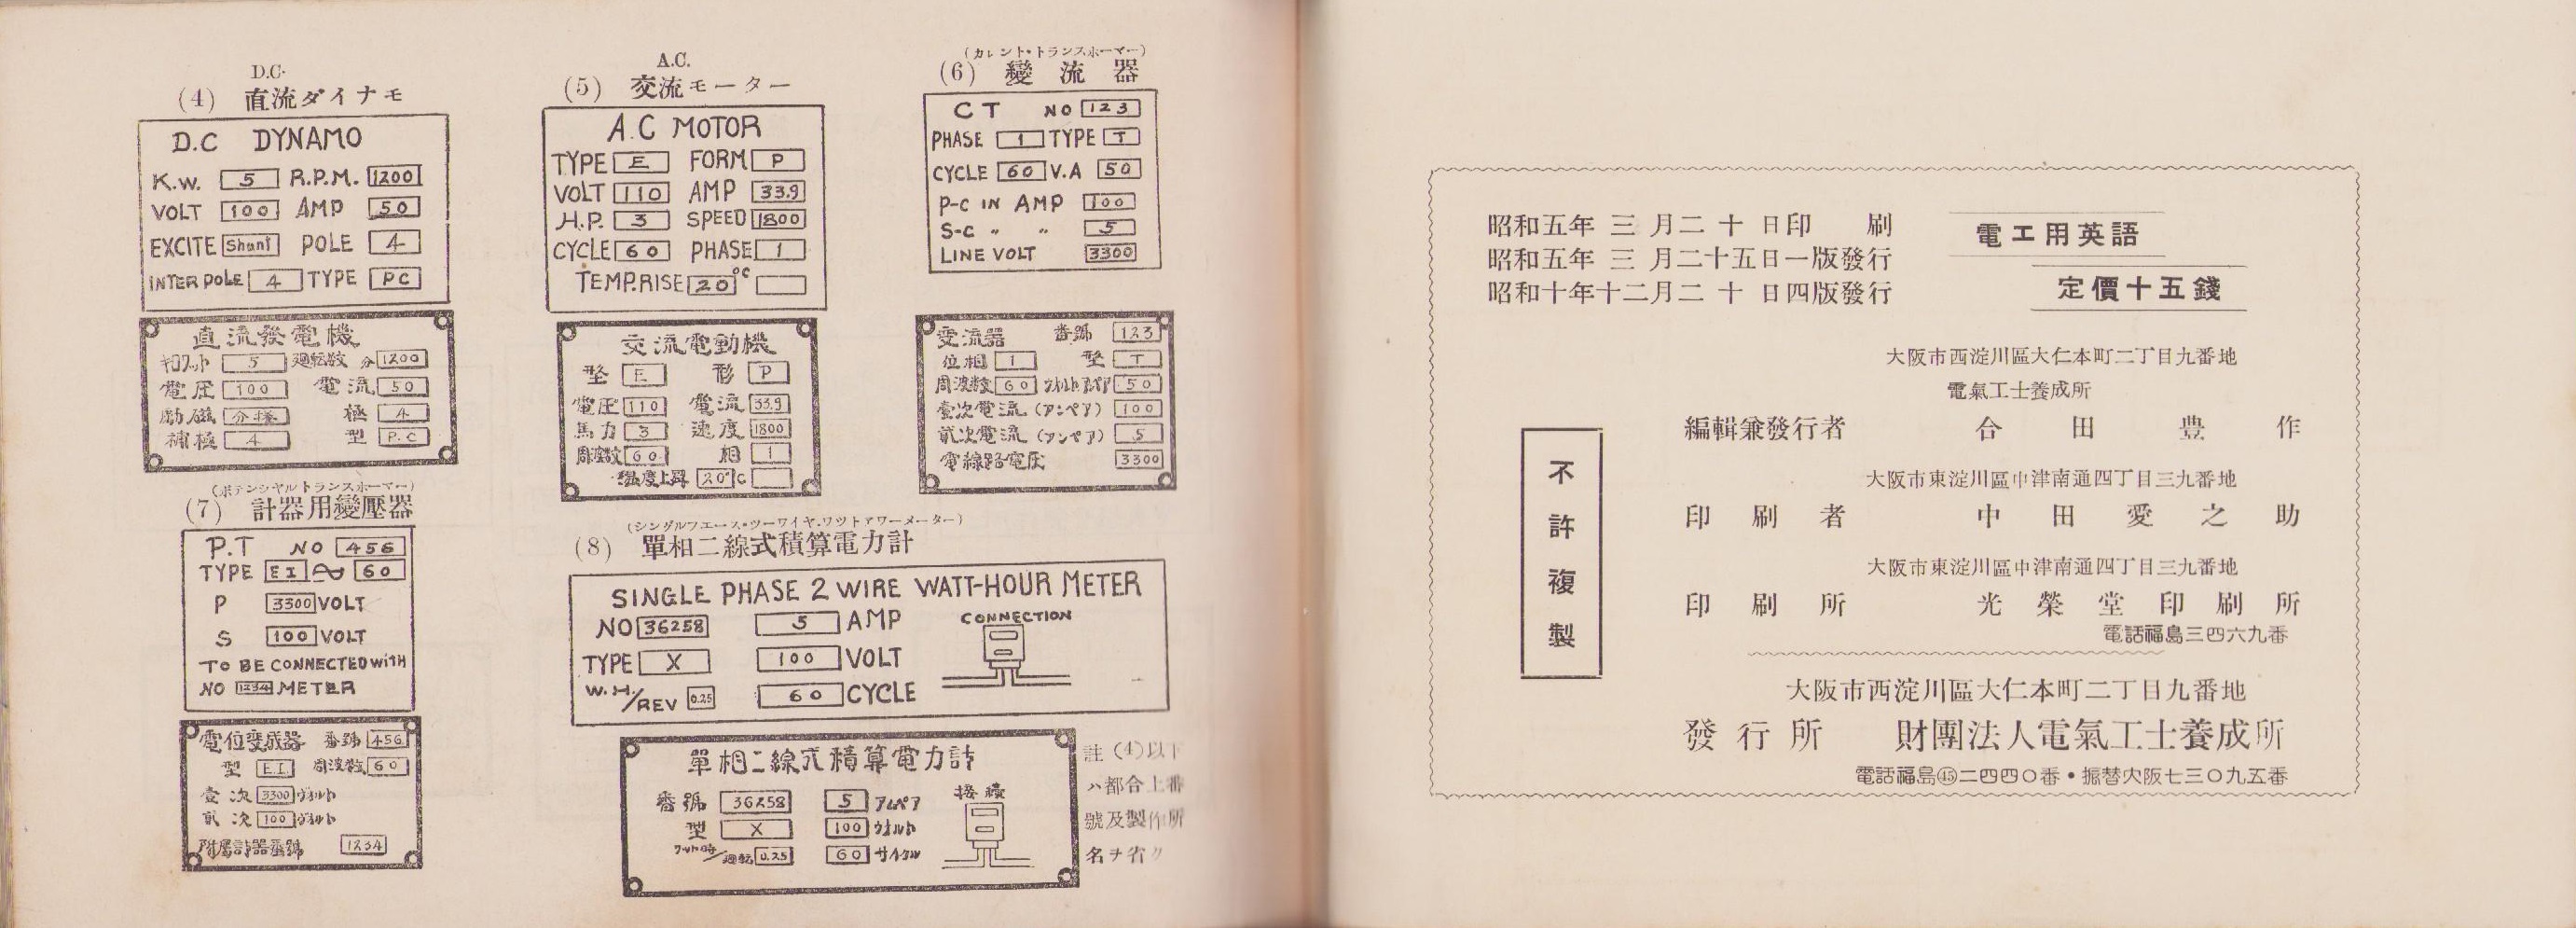 D.C.
(4) 直流ダイナモ
D.C DYNAMO
K.W. 5 R.P.M. 1200
VOLT 100 AMP 50
EXCITE Shunt POLE 4
INTER POLE 4 TYPE PC
直流發電機
キロワット 5 廻転数 分 1200
電圧 100 電流 50
励磁 分捲 極 4
補極 4 型 P.C
A.C.
(5) 交流モーター
A.C MOTOR
TYPE E FORM P
VOLT 110 AMP 33.9
H.P. 3 SPEED 1800
CYCLE 60 PHASE 1
TEMP.RISE 20 °C
交流電動機
型 E 形 P
電圧 110 電流 33.9
馬力 3 速度 1800
周波数 60 相 1
温度上昇 20° C
(カレント・トランスホーマー)
(6) 變流器
CT NO 123
PHASE 1 TYPE T
CYCLE 60 V.A 50
P-C IN AMP 100
S-C 〃 〃 5
LINE VOLT 3300
変流器 番號 123
位相 1 型 T
周波数 60 ヴォルトアムペア 50
壹次電流(アンペア) 100
貳次電流(アンペア) 5
電線路電圧 3300
(ポテンシヤルトランスホーマー)
(7) 計器用變壓器
P.T NO 456
TYPE EI ~ 60
P 3300 VOLT
S 100 VOLT
TO BE CONNECTED WITH
NO 1234 METER
電位変成器 番號 456
型 E.I. 周波数 60
壹次 3300 ヴォルト
貳次 100 ヴォルト
附屬計器番號 1234
(シングルフエース・ツーワイヤ・ワツトアワーメーター)
(8) 單相二線式積算電力計
SINGLE PHASE 2 WIRE WATT-HOUR METER
NO 36258 5 AMP CONNECTION
TYPE X 100 VOLT
W.H./REV 0.25 60 CYCLE
單相二線式積算電力計
番號 36258 5 アムペア 接續
型 X 100 ヴォルト
ワット時/廻転 0.25 60 サイクル
註 (4)以下
ハ都合上番
號及製作所
名ヲ省ク
昭和五年三月二十日印刷
昭和五年三月二十五日一版發行
昭和十年十二月二十日四版發行
電工用英語
定價十五錢
不許複製
大阪市西淀川區大仁本町二丁目九番地
電氣工士養成所
編輯兼發行者 合田豊作
大阪市東淀川區中津南通四丁目三九番地
印刷者 中田愛之助
大阪市東淀川區中津南通四丁目三九番地
印刷所 光榮堂印刷所
電話福島三四六九番
大阪市西淀川區大仁本町二丁目九番地
發行所 財團法人電氣工士養成所
電話福島㊺二四四〇番・振替大阪七三〇九五番